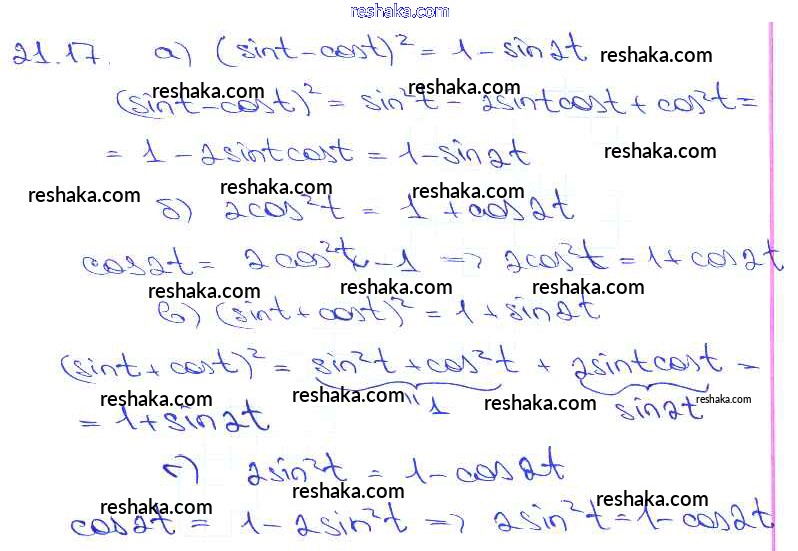 reshaka.com
21.17. а) (sint-cost)² = 1 - sin2t
reshaka.com
reshaka.com reshaka.com
(sint-cost)² = sin²t - 2sintcost + cos²t =
= 1 - 2sintcost = 1-sin2t reshaka.com
reshaka.com reshaka.com reshaka.com
б) 2cos²t = 1 + cos2t
cos2t = 2cos²t - 1 => 2cos²t = 1 + cos2t
reshaka.com reshaka.com reshaka.com
в) (sint + cost)² = 1 + sin2t
(sint + cost)² = sin²t + cos²t + 2sintcost =
reshaka.com " 1 reshaka.com sin2t reshaka.com
= 1 + sin2t
г) 2sin²t = 1 - cos2t
reshaka.com reshaka.com reshaka.com
cos2t = 1 - 2sin²t => 2sin²t = 1 - cos2t